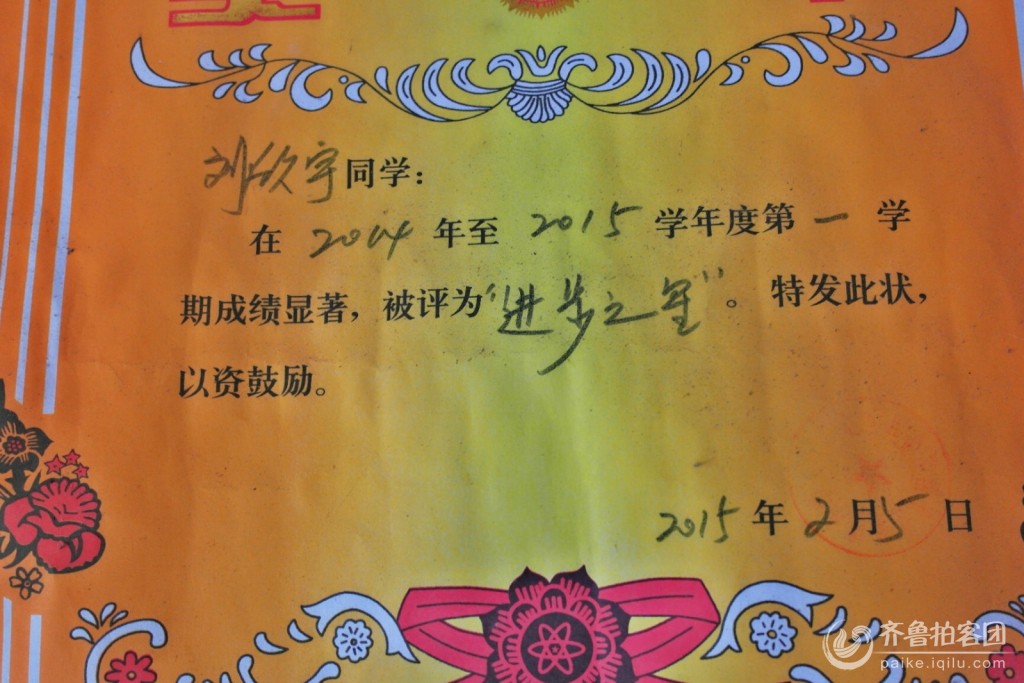 刘欣宇同学：
在 2014 年至 2015 学年度第 一 学
期成绩显著，被评为“进步之星”。特发此状，
以资鼓励。
2015 年 2 月 5 日
齐鲁拍客团
paike.iqilu.com